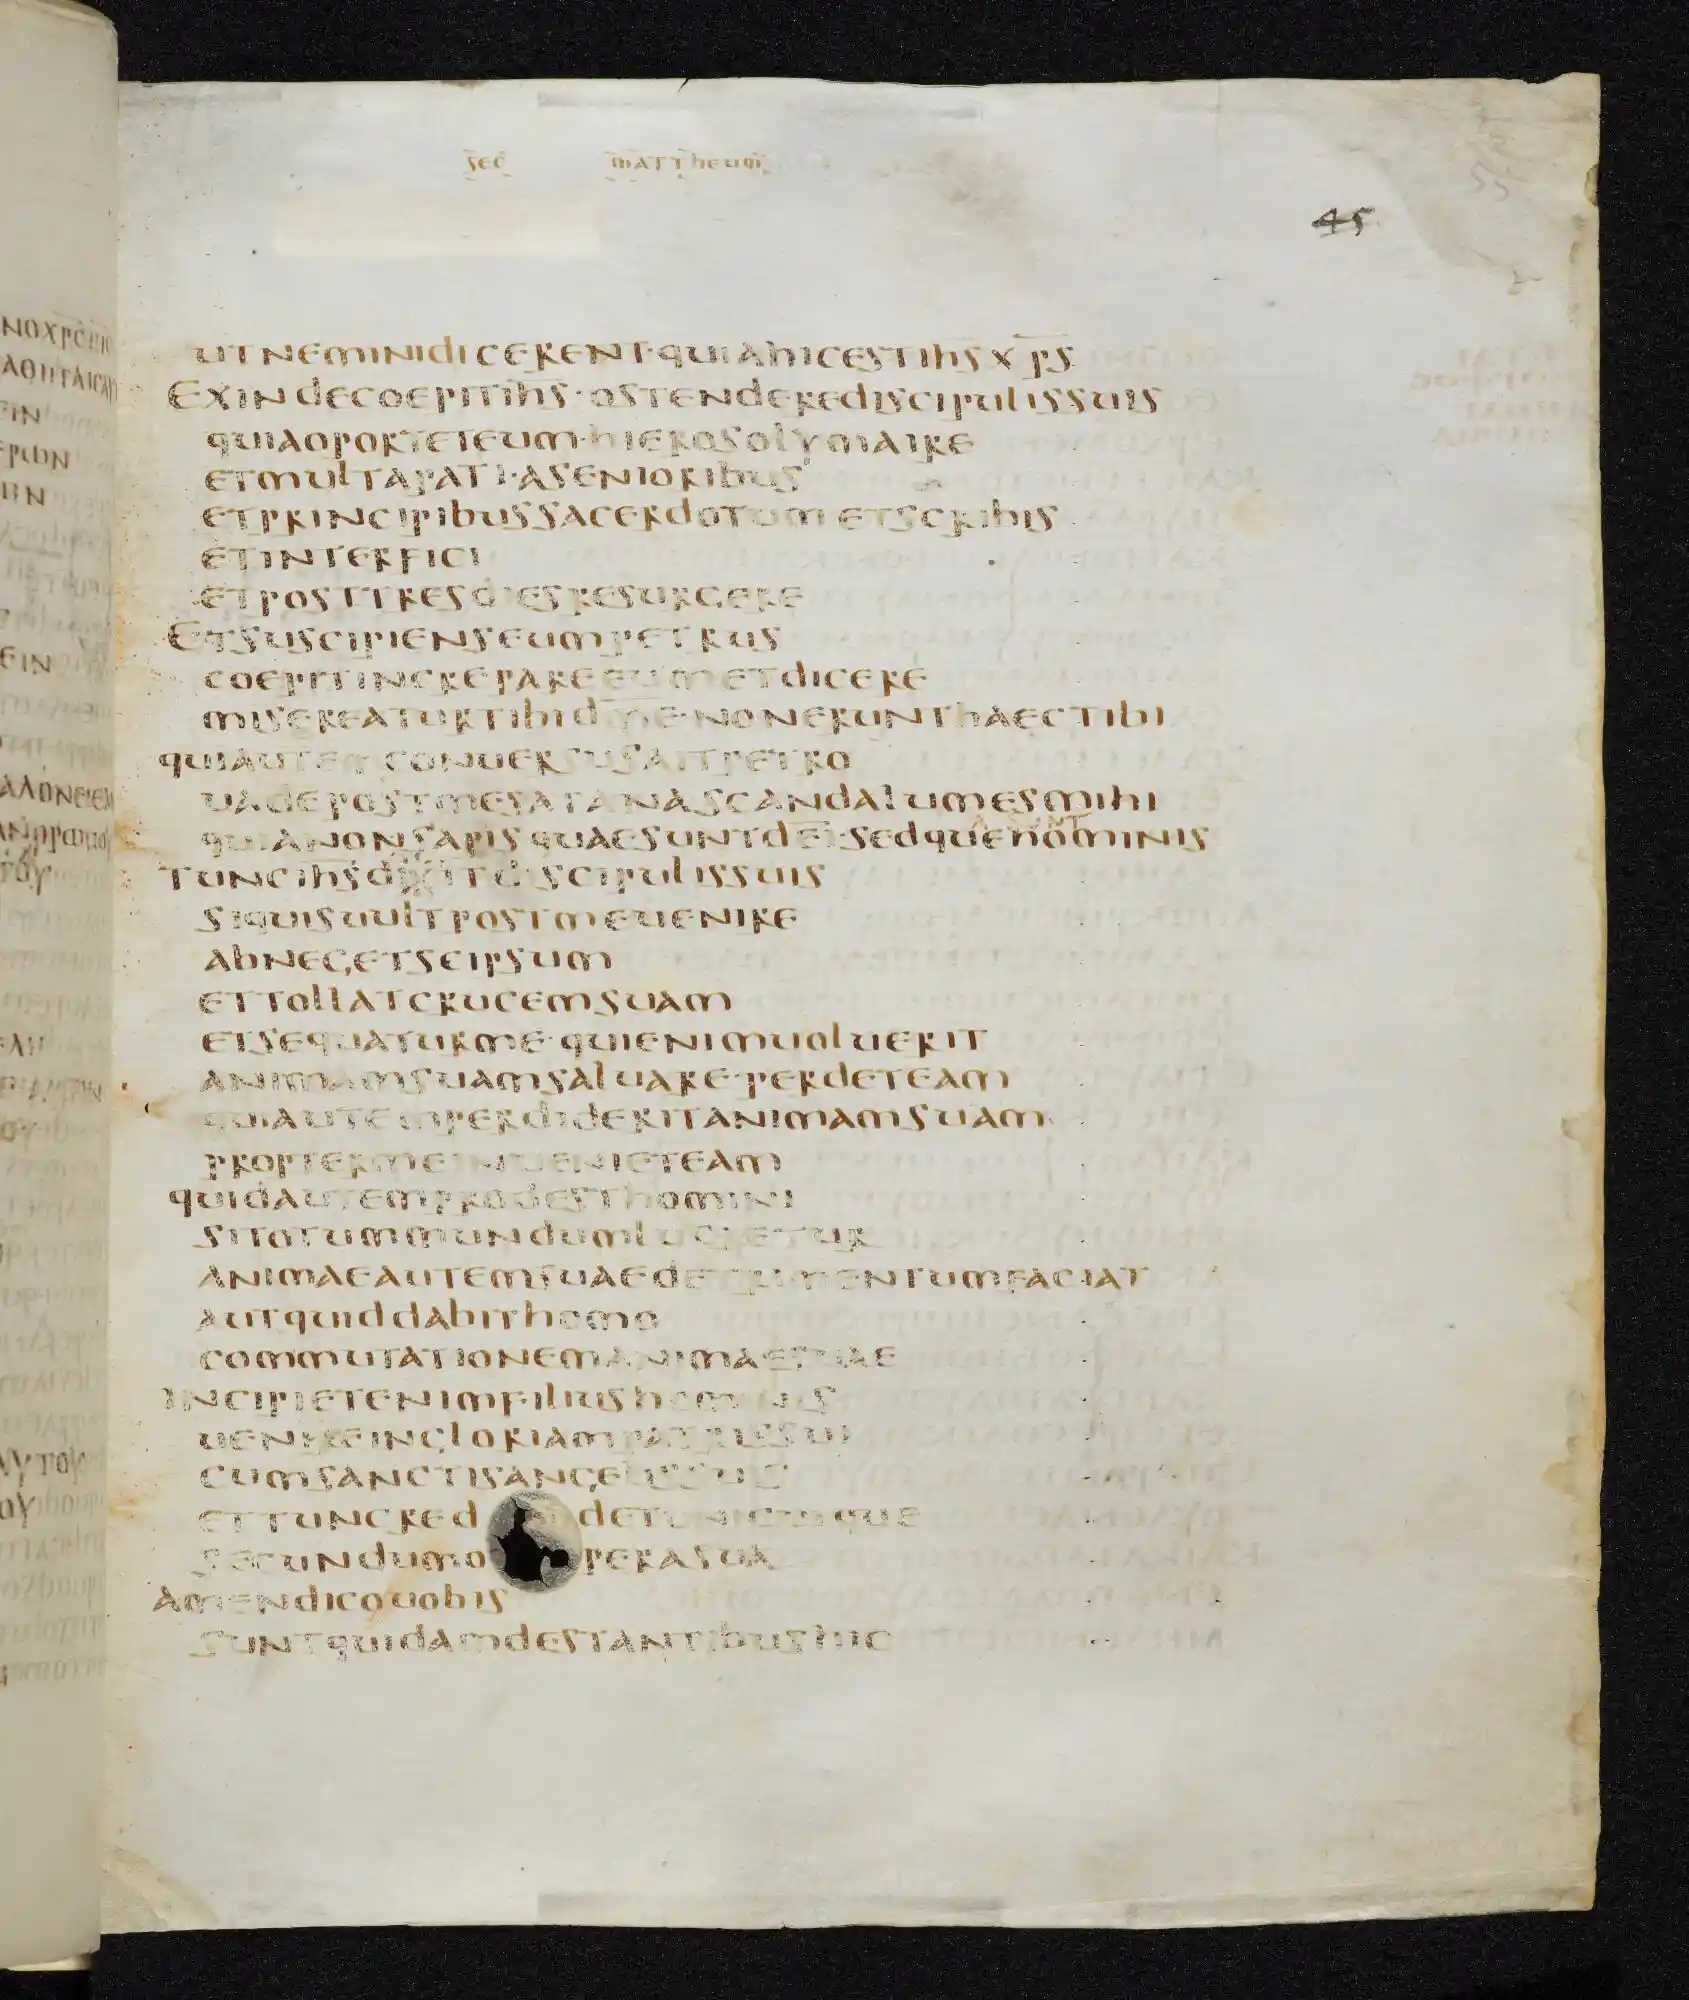 sec mattheum
45
55
utneminidicerent·quiahicestihs xps
Exindecoepitihs·ostenderediscipulissuis
quiaoporteteum·hierosolymaire
etmultapati·asenioribus
etprincipibussacerdotumetscribis
etinterfici
etposttresdiesresurgere
Etsuscipienseumpetrus
coepitincrepareeumetdicere
misereaturtibidme·nonerunthaectibi
quiautem conversusaitpetro
uadepostmesatanascandalumesmihi
quianonsapisquaesuntdei·sedquehominis
sunt
Tuncihsdixitdiscipulissuis
siquisuultpostmeuenire
abnegetseipsum
ettollatcrucemsuam
etsequaturme·quienimuoluerit
animamsuamsaluare·perdeteam
quiautemperdideritanimamsuam
proptermeinuenieteam
quidautemprodesthomini
sitotummundumlucretur
animaeautemsuaedetrimentumfaciat
autquiddabithomo
commutationemanimaesuae
incipietenimfiliushominis
uenireingloriampatrissui
cumsanctisangelissuis
ettuncred detunicuique
secundumo perasua
Amendicouobis
suntquidamdestantibushic